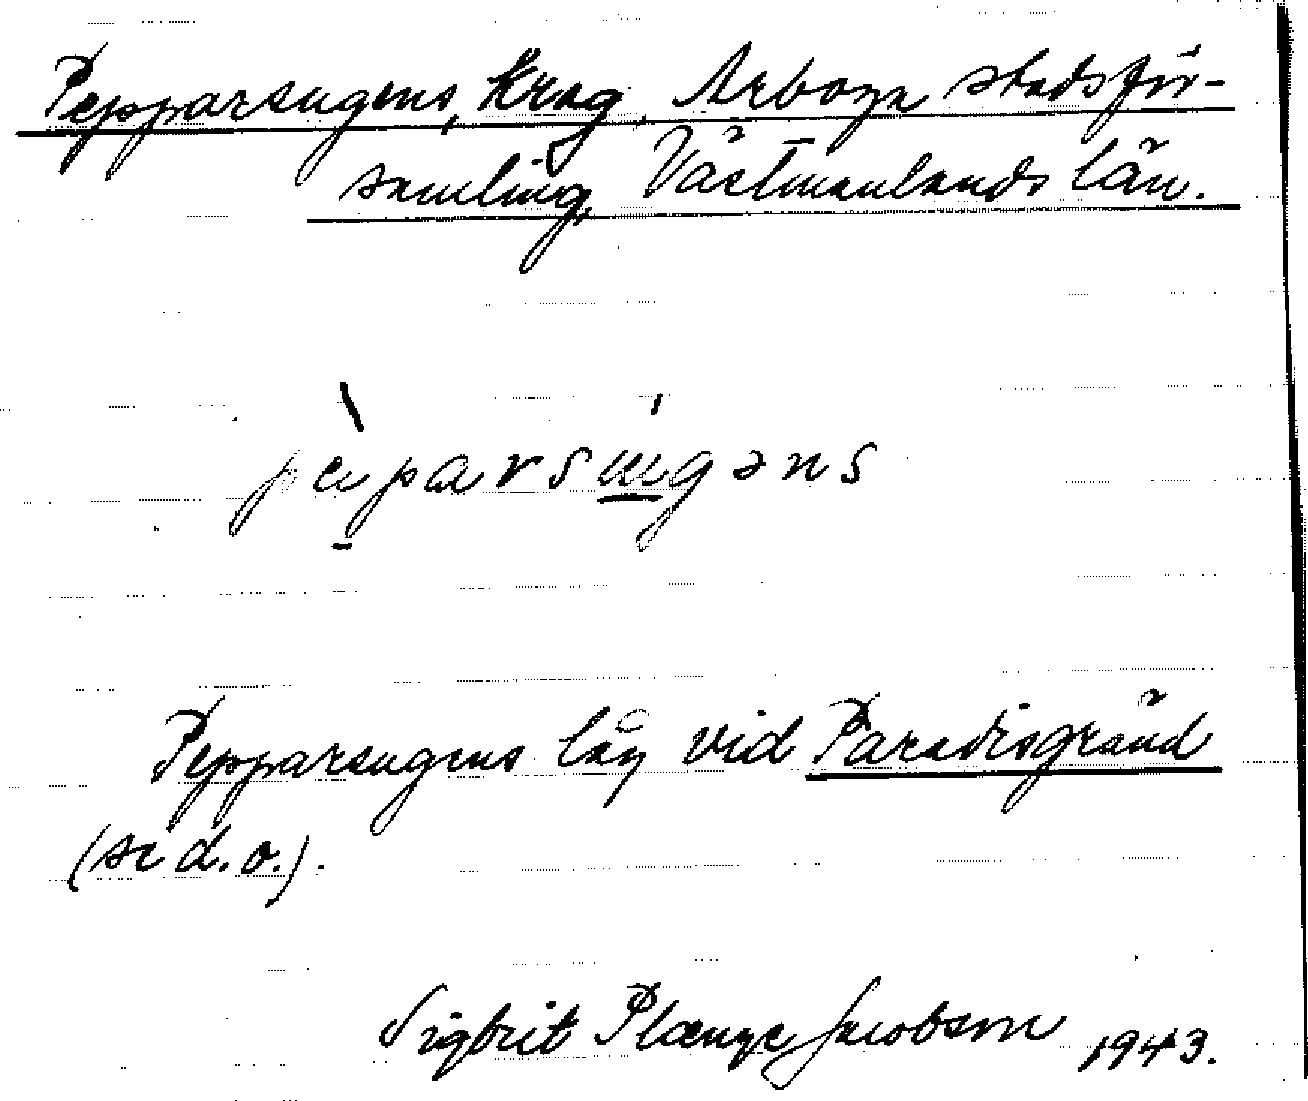 Pepparsugens, krog, Arboga stadsför-
samling, Västmanlands län.
pepparsugens låg vid Paradisgränd
(se d. o.).
Sigbrit Plænge Jacobson 1943.